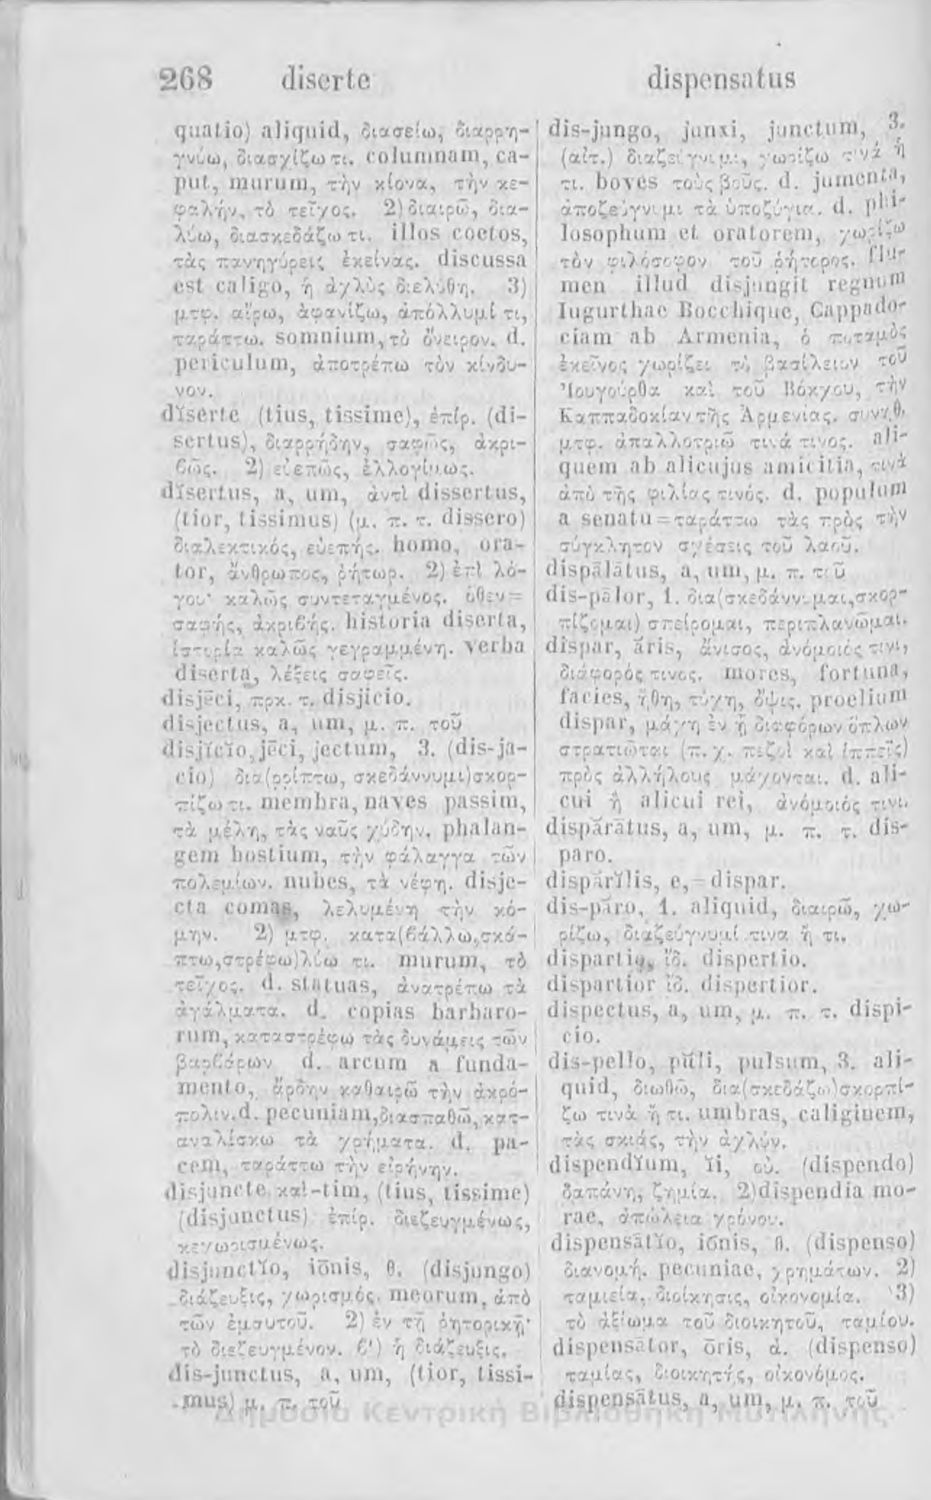 268 diserte dispensatus
quatio) aliquid, διασείω, διαρρη-
γνύω, διασχίζω τι. columnam, ca-
put, murum, τὴν κίονα, τὴν κε-
φαλήν, τὸ τεῖχος. 2) διαιρῶ, δια-
λύω, διασκεδάζω τι. illos coetos,
τὰς πανηγύρεις ἐκείνας. discussa
est caligo, ἡ ἀχλὺς διελύθη. 3)
μτφ. αἴρω, ἀφανίζω, ἀπόλλυμί τι,
ταράττω. somnium, τὸ ὄνειρον. d.
periculum, ἀποτρέπω τὸν κίνδυ-
νον.
dĭserte (tius, tissime), ἐπίρ. (di-
sertus), διαρρήδην, σαφῶς, ἀκρι-
βῶς. 2) εὐεπῶς, ἐλλογίμως.
dĭsertus, a, um, ἀντὶ dissertus,
(tior, tissimus) (μ. π. τ. dissero)
διαλεκτικός, εὐεπής. homo, ora-
tor, ἄνθρωπος, ῥήτωρ. 2) ἐπὶ λό-
γου· καλῶς συντεταγμένος. ὅθεν=
σαφής, ἀκριβής. historia diserta,
ἱστορία καλῶς γεγραμμένη. verba
diserta, λέξεις σαφεῖς.
disjēci, πρκ. τ. disjicio.
disjectus, a, um, μ. π. τοῦ
disjĭcĭo, jēci, jectum, 3. (dis-ja-
cio) δια(ρρίπτω, σκεδάννυμι)σκορ-
πίζω τι. membra, naves passim,
τὰ μέλη, τὰς ναῦς χύδην. phalan-
gem hostium, τὴν φάλαγγα τῶν
πολεμίων. nubes, τὰ νέφη. disje-
cta comas, λελυμένη τὴν κό-
μην. 2) μτφ. κατα(βάλλω,σκά-
πτω,στρέφω)λύω τι. murum, τὸ
τεῖχος. d. statuas, ἀνατρέπω τὰ
ἀγάλματα. d. copias barbaro-
rum, καταστρέφω τὰς δυνάμεις τῶν
βαρβάρων d. arcum a funda-
mento, ἄρδην καθαιρῶ τὴν ἀκρό-
πολιν. d. pecuniam, διασπαθῶ, κατ-
αναλίσκω τὰ χρήματα. d. pa-
cem, ταράττω τὴν εἰρήνην.
disjuncte καὶ -tim, (tius, tissime)
(disjunctus) ἐπίρ. διεζευγμένως,
κεχωρισμένως.
disjunctĭo, iōnis, θ. (disjungo)
διάζευξις, χωρισμός. meorum, ἀπὸ
τῶν ἐμαυτοῦ. 2) ἐν τῇ ῥητορικῇ·
τὸ διεζευγμένον. β') ἡ διάζευξις.
dis-junctus, a, um, (tior, tissi-
mus) μ. π. τοῦ
dis-jungo, junxi, junctum, 3.
(αἰτ.) διαζεύγνυμι, χωρίζω τινὰ ἤ
τι. boves τοὺς βοῦς. d. jumenta,
ἀποζεύγνυμι τὰ ὑποζύγια. d. phi-
losophum et oratorem, χωρίζω
τὸν φιλόσοφον τοῦ ῥήτορος. flu-
men illud disjungit regnum
Iugurthae Bocchique, Cappado-
ciam ab Armenia, ὁ ποταμὸς
ἐκεῖνος χωρίζει τὸ βασίλειον τοῦ
Ἰουγούρθα καὶ τοῦ Βόκχου, τὴν
Καππαδοκίαν τῆς Ἀρμενίας. συνήθ.
μτφ. ἀπαλλοτριῶ τινά τινος. ali-
quem ab alicujus amicitia, τινὰ
ἀπὸ τῆς φιλίας τινός. d. populum
a senatu=ταράττω τὰς πρὸς τὴν
σύγκλητον σχέσεις τοῦ λαοῦ.
dispālātus, a, um, μ. π. τοῦ
dis-pālor, 1. δια(σκεδάννυμαι,σκορ-
πίζομαι) σπείρομαι, περιπλανῶμαι.
dispar, ăris, ἄνισος, ἀνόμοιός τινι,
διάφορός τινος. mores, fortuna,
facies, ἤθη, τύχη, ὄψις. proelium
dispar, μάχη ἐν ᾗ διαφόρων ὅπλων
στρατιῶται (π. χ. πεζοὶ καὶ ἱππεῖς)
πρὸς ἀλλήλους μάχονται. d. ali-
cui ἢ alicui rei, ἀνόμοιός τινι.
dispărātus, a, um, μ. π. τ. dis-
paro.
dispărĭlis, e,=dispar.
dis-păro, 1. aliquid, διαιρῶ, χω-
ρίζω, διαζεύγνυμί τινα ἤ τι.
dispartio, ἴδ. dispertio.
dispartior ἴδ. dispertior.
dispectus, a, um, μ. π. τ. dispi-
cio.
dis-pello, pŭli, pulsum, 3. ali-
quid, διωθῶ, δια(σκεδάζω)σκορπί-
ζω τινὰ ἤ τι. umbras, caliginem,
τὰς σκιάς, τὴν ἀχλύν.
dispendĭum, ĭi, οὐ. (dispendo)
δαπάνη, ζημία. 2)dispendia mo-
rae, ἀπώλεια χρόνου.
dispensātĭo, iōnis, θ. (dispenso)
διανομή. pecuniae, χρημάτων. 2)
ταμιεία, διοίκησις, οἰκονομία. 3)
τὸ ἀξίωμα τοῦ διοικητοῦ, ταμίου.
dispensātor, ōris, ἀ. (dispenso)
ταμίας, διοικητής, οἰκονόμος.
dispensātus, a, um, μ. π. τοῦ
Δημόσια Κεντρική Βιβλιοθήκη Μυτιλήνης